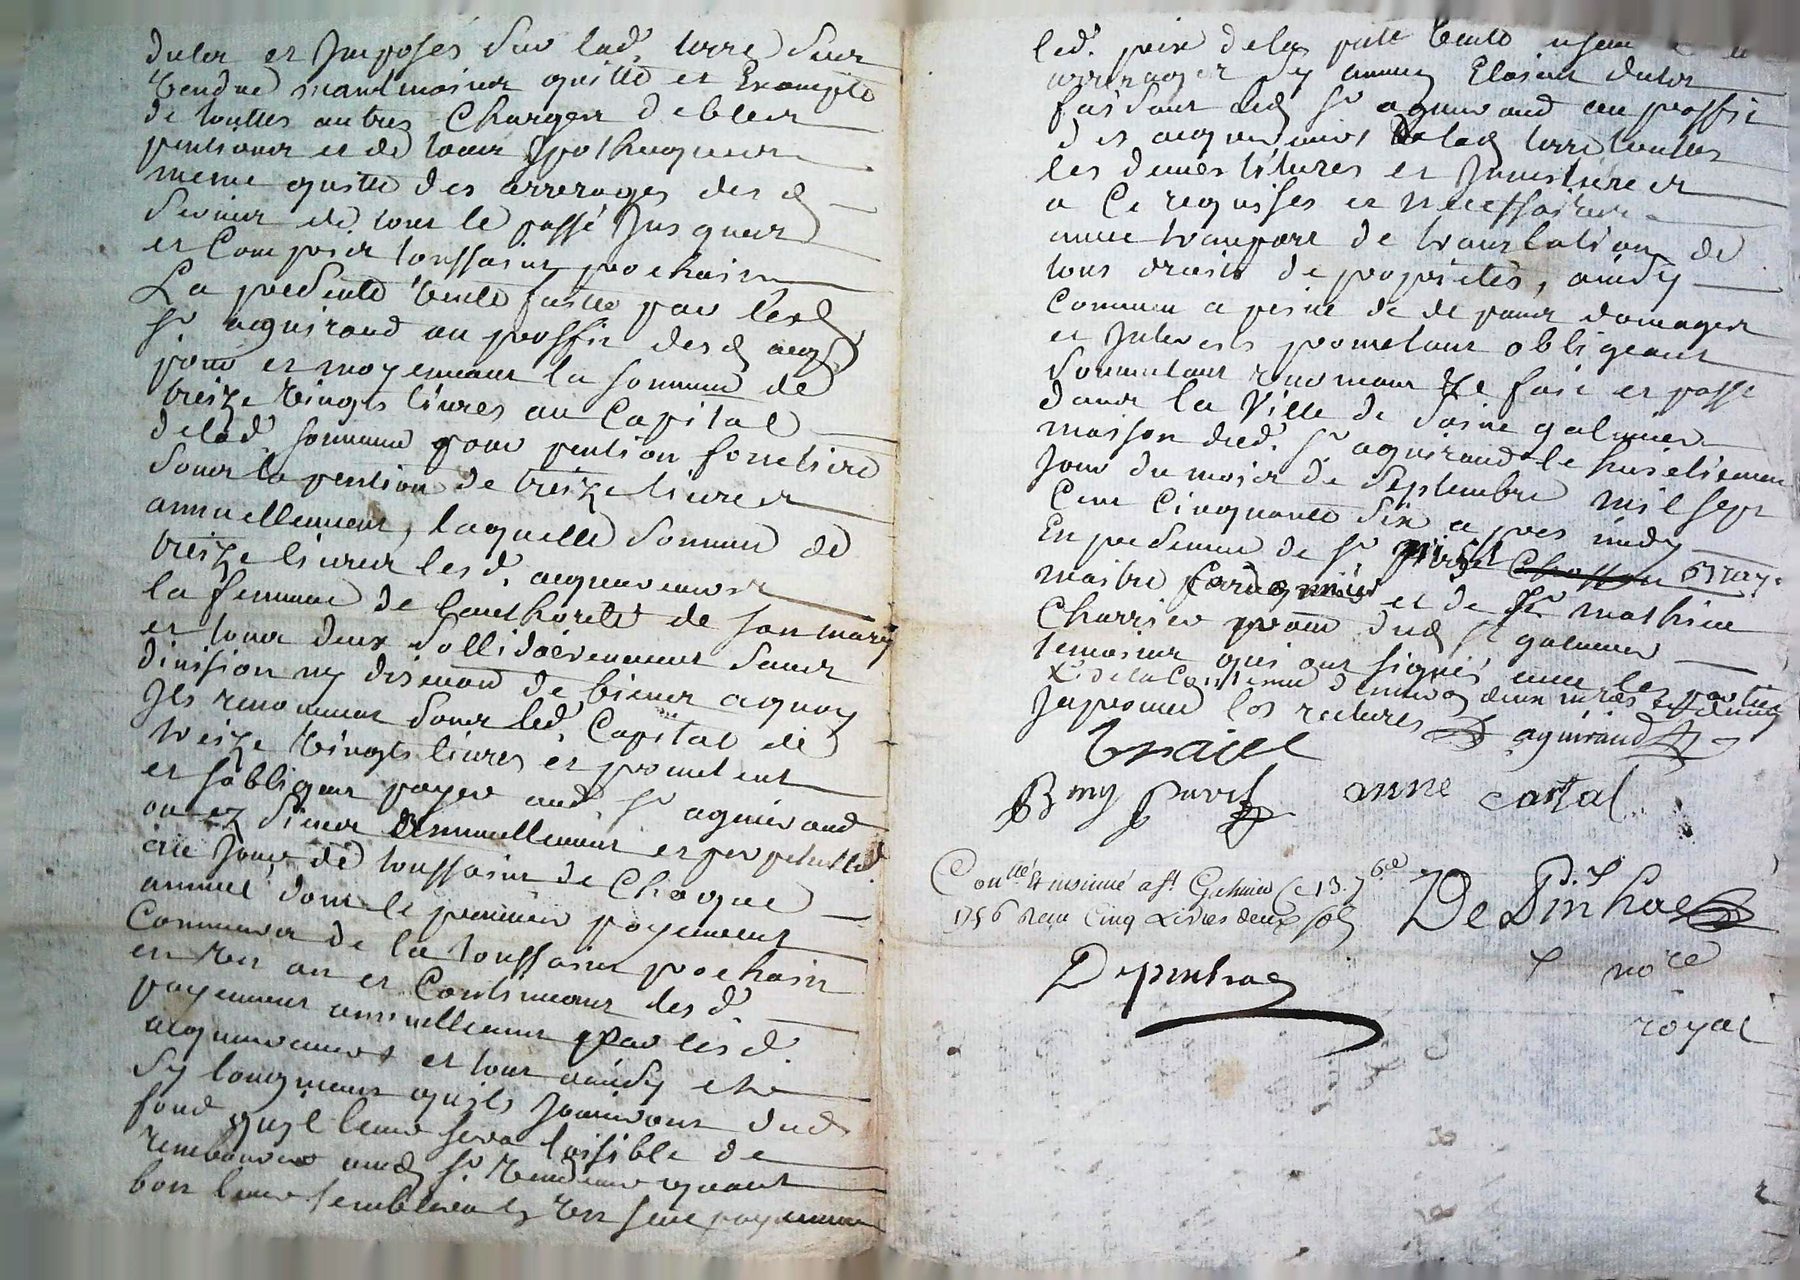 duber et Imposés sur lad. terre sur
vendue neantmoins quitte et Exempte
de touttes autres Charges debtes
pentions et de tous hypotheques
meme quitte des arrerages des d
servis de tout le passé Jusques
et Compris toussaint prochain
La presente vente faitte par led
sr aguiraud au proffit desd acq
pour et moyennant la somme de
treize vingts livres au Capital
delad. somme pour pention fonciere
sous la pention de treize livres
annuellement, laquelle somme de
treize livres lesd. acquereurs
la femme de lauthorité de son mary
et tous deux sollidairement sans
division ny discution de biens aquoy
Ils renoncent sous led. Capital de
treize vingts livres et prometent
et sobligent payer aud sr aguiraud
ou ez siens annuellement et perpetuelle
au Jour de toussaint de Chaque
année dont le premier payement
Commencera de la toussaint prochain
en un an et Continuant lesd.
payement annuellement par lesd.
acquereurs et tout ainsy
sy longtemps quils Jouiront dud
fond quil leur sera loisible de
rembourcer aud sr vendeur quand
bon leur semblera en un seul payement
led. prix delad pnte vente
arrerages sy aucuns Etoient dubs
faisant led sr aguiraud au proffit
des acquereurs de lad terre touttes
les demestitures et Investitures
a Ce requises et necessaires
avec transport de translation de
tous droits de proprietés, ainsy
Convenu a peine de de pans domages
et Interests prometant obligeant
soumetant renonceant &e fait et passé
dans la Ville de saint galmier
maison dud. sr aguiraud le huitieme
Jour du mois de septembre mil sept
Cent Cinquante six a pres midy
En presence de sr Bray
maitre Cordonnier et de sr mathieu
Charrier pratt dud st galmier
temoins qui ont signé avec les parties
Inprouvé les ratures aguiraud
Bmy anne
Conllé & insinué a st Galmier le 13. 7bre
1756 Reçu Cinq Livres deux sols
De Pinhac
Depinhac
nore
royal